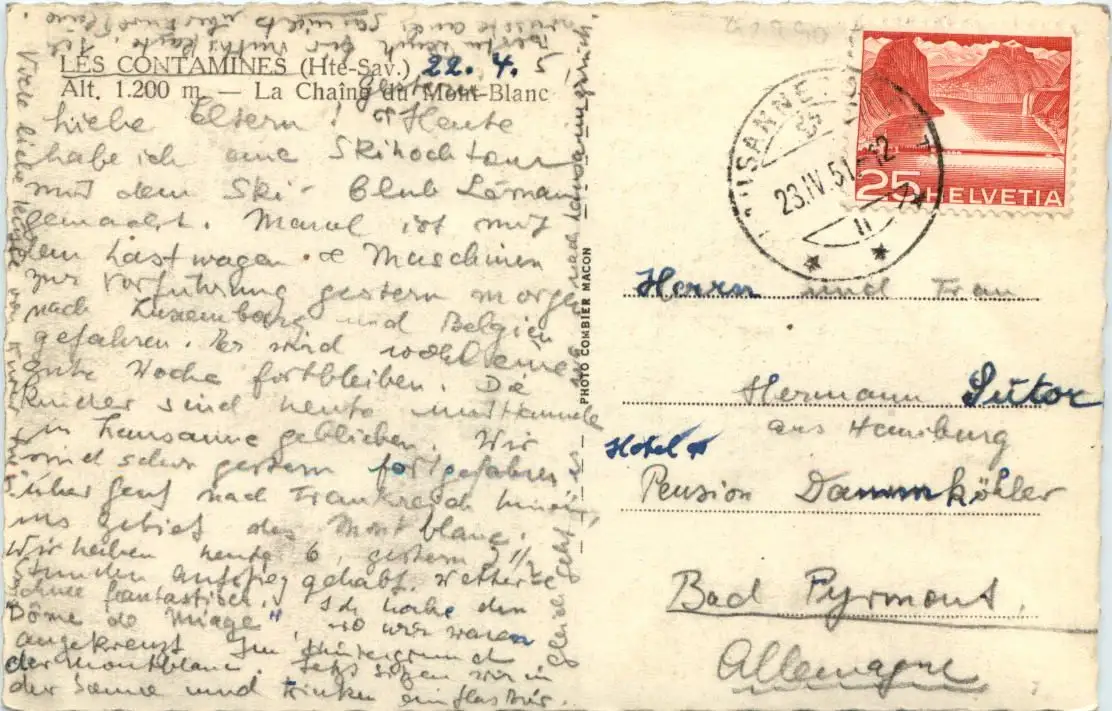 LES CONTAMINES (Hte-Sav.) 22. 4. 51
Alt. 1.200 m. — La Chaîne du Mont-Blanc
Liebe Eltern! Heute
habe ich eine Skihochtour
mit dem Ski-Club Léman
gemacht. Marcel ist mit
dem Lastwagen & Maschinen
zur Vorführung gestern morgen
nach Luxemburg und Belgien
gefahren. Er wird wohl eine
gute Woche fortbleiben. Die
Kinder sind heute
in Lausanne geblieben. Wir
sind schon gestern fortgefahren
über Genf nach Frankreich hinein,
ins Gebiet des Mont blanc.
Wir haben heute 6, gestern 2 1/2
Stunden Aufstieg gehabt. Wetter &
Schnee fantastisch. Ich habe den
"Dôme de Miage", wo wir waren
angekreuzt. Im Hintergrund
der Montblanc. Jetzt sitzen wir in
der Sonne und trinken ein Glas Bier.
Gleich geht es nach Lausanne zurück.
Viele liebe
PHOTO COMBIER MACON
LAUSANNE
23.IV.51.-12
25 HELVETIA
Herrn und Frau
Hermann Sutor
aus Hamburg
Hotel
Pension Dammköhler
Bad Pyrmont,
Allemagne